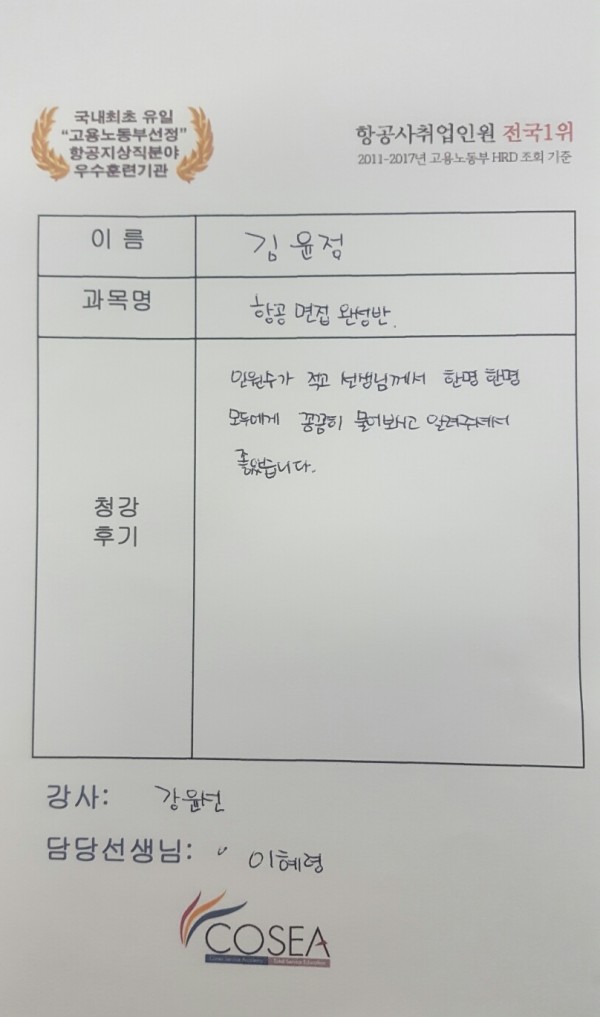 국내최초 유일
"고용노동부선정"
항공지상직분야
우수훈련기관
항공사취업인원 전국1위
2011-2017년 고용노동부 HRD 조회 기준
이 름
김 윤정
과목명
항공 면접 완성반.
청강
후기
인원수가 적고 선생님께서 한명 한명
모두에게 꼼꼼히 물어봐시고 알려주셔서
좋았습니다.
강사: 강윤선
담당선생님: 이혜영
COSEA